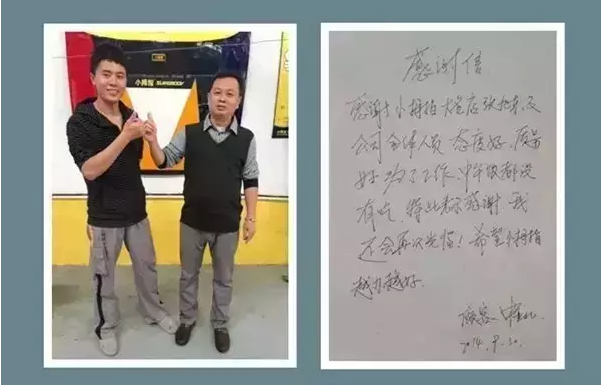 小拇指
感谢信
感谢小拇指 店张 及
公司全体人员 态度好、质量
好 为了工作、中午饭都没
有吃、特此表示感谢 我
还会再次光临！希望小拇指
越办越好.
顾客:
2014.9.30.